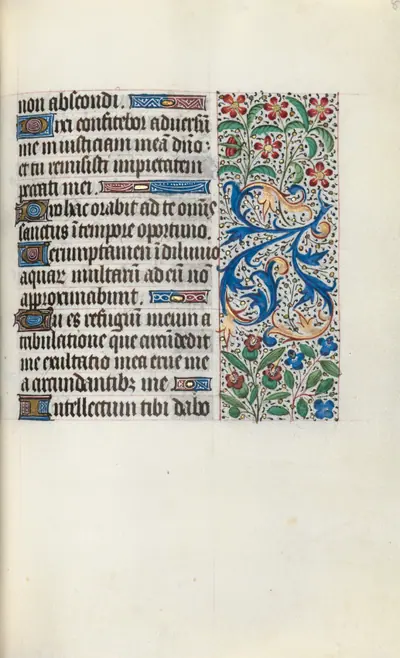 non abscondi.
Dixi confitebor adversũ
me in iusticiam meã dño:
et tu remisisti impietatem
peccati mei.
Pro hac orabit ad te omĩs
sanctus ĩ tempore oportuno.
Uerumptamen ĩ diluuio
aquar̃ multarũ ad eũ nõ
approximabunt.
Tu es refugiũ meum a
tribulatione que circũdedit
me exultatio mea erue me
a circundantibꝫ me
Intellectum tibi dabo